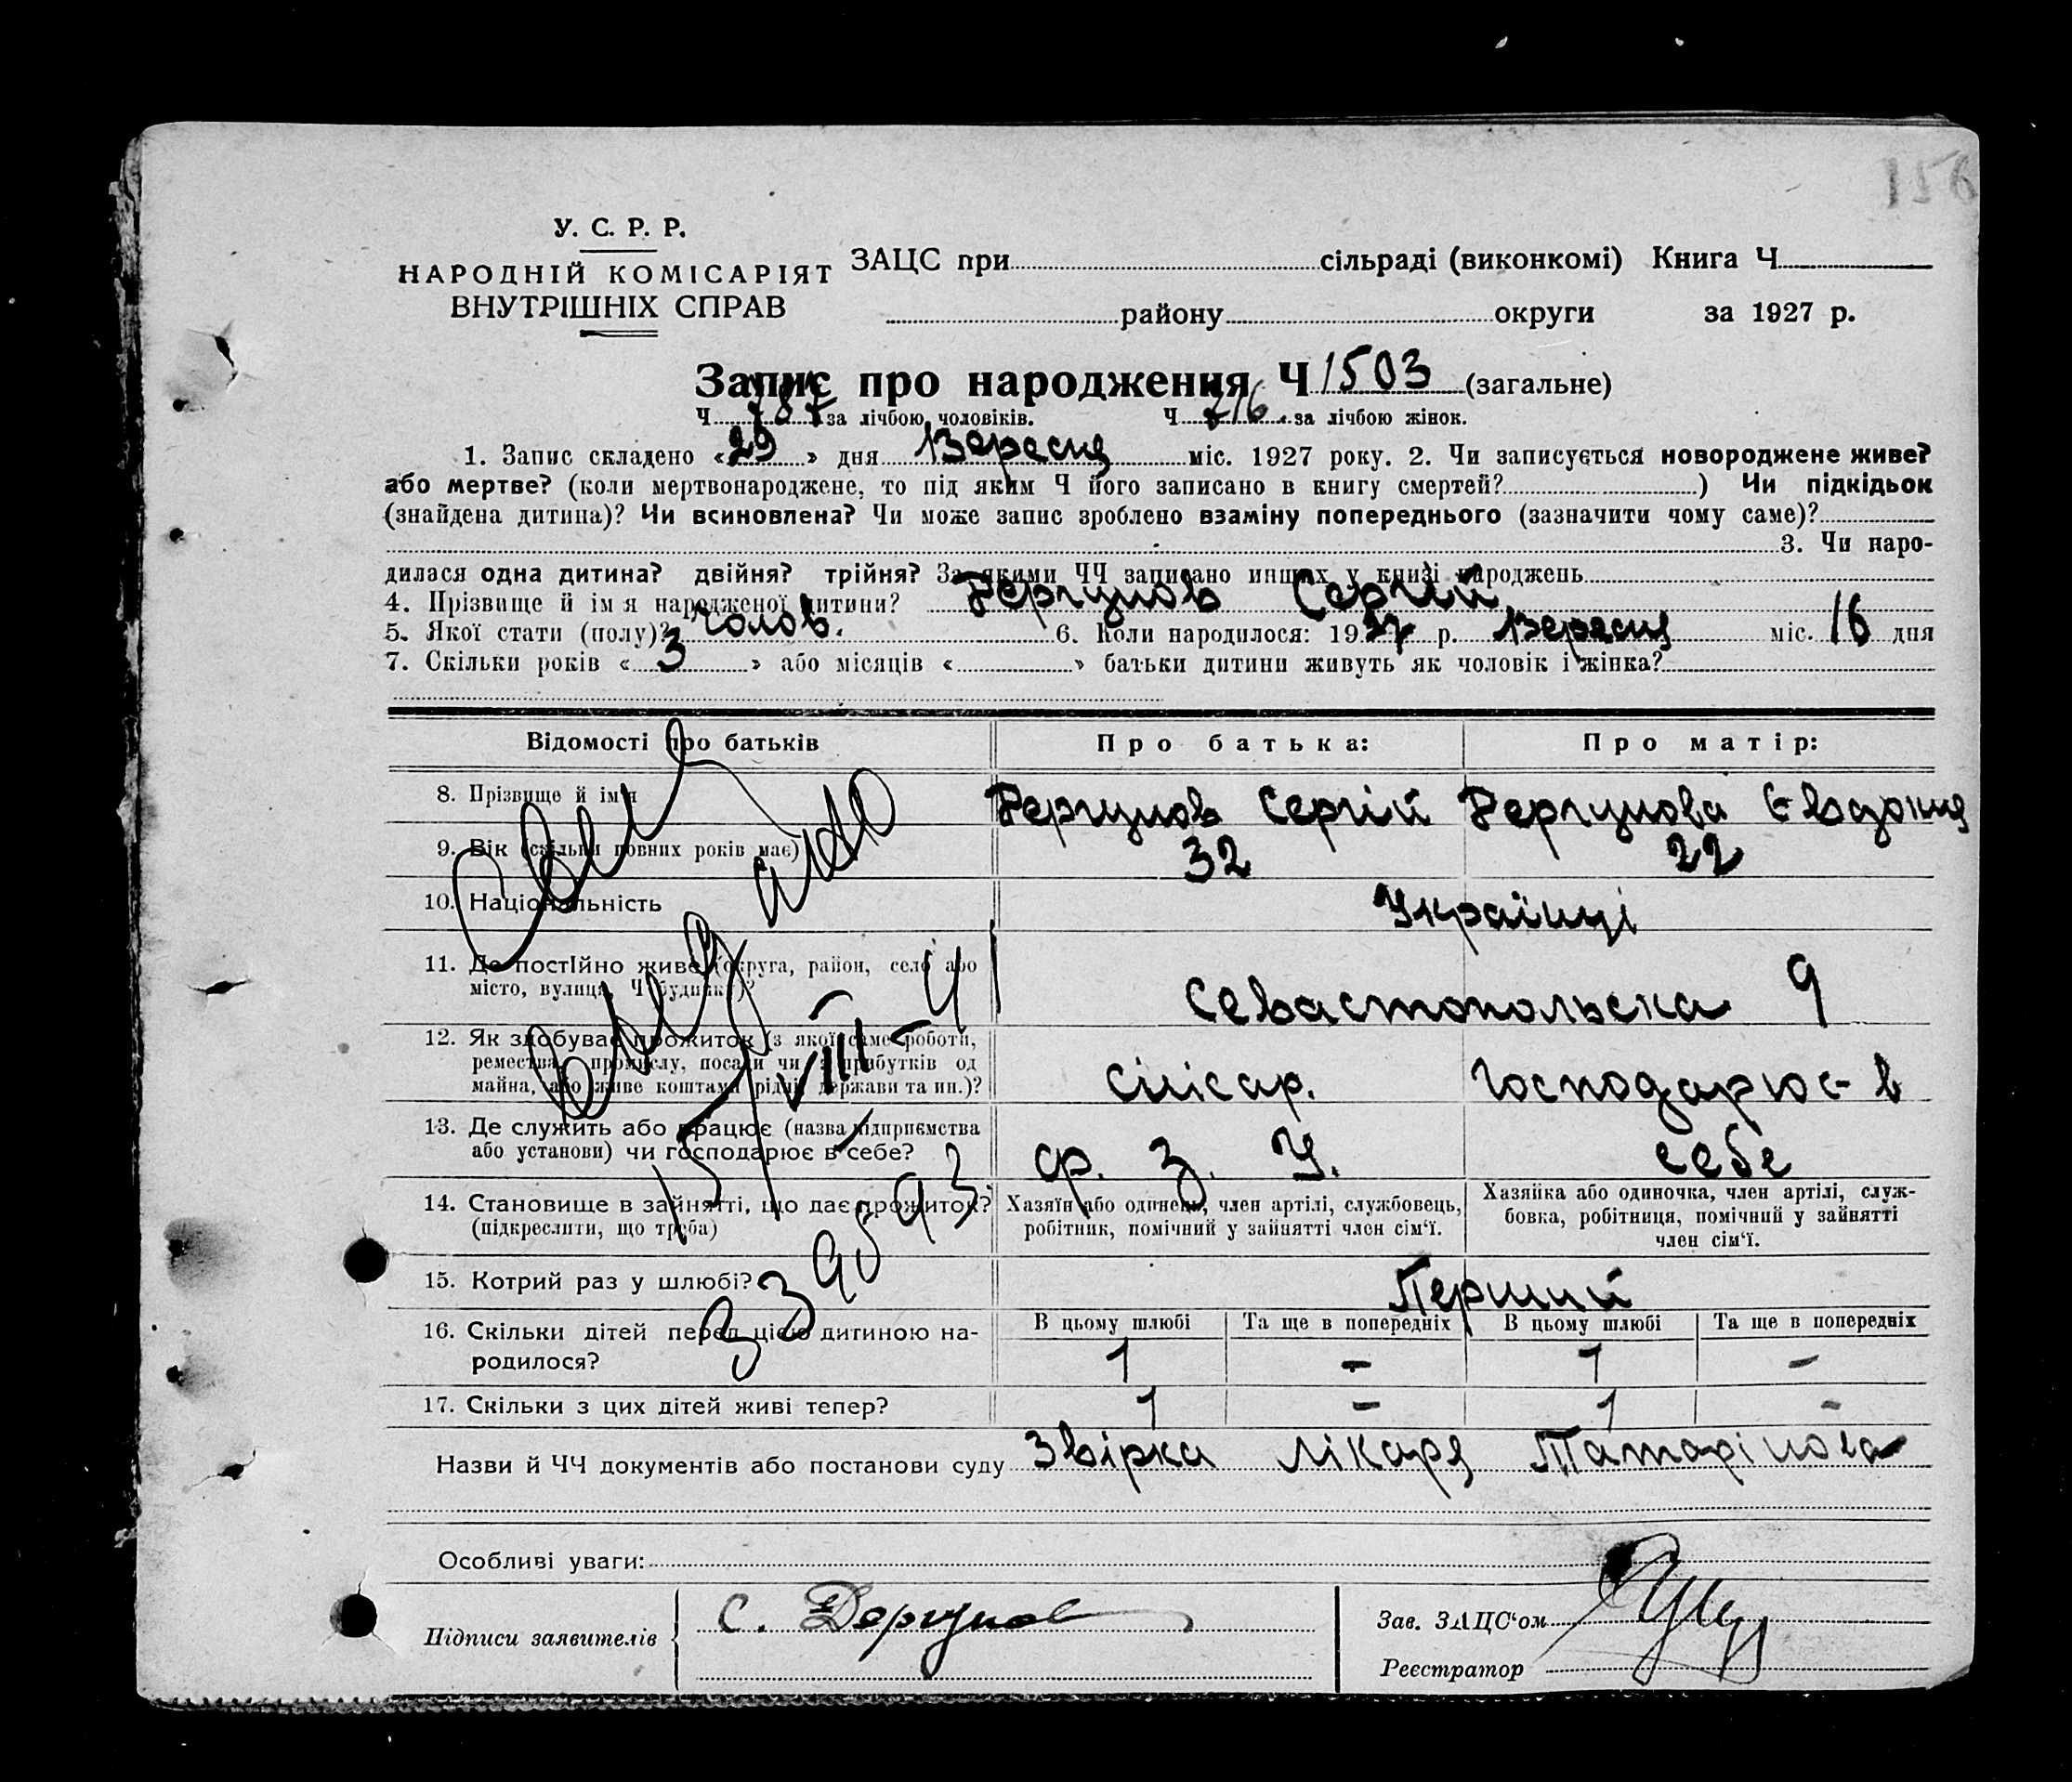 156
У. С. Р. Р.
НАРОДНІЙ КОМІСАРІЯТ
ВНУТРІШНІХ СПРАВ
ЗАЦС при сільраді (виконкомі) Книга Ч.
району округи за 1927 р.
Запис про народження Ч 1503 (загальне)
Ч 787 за лічбою чоловіків. Ч 716 за лічбою жінок.
1. Запис складено «29» дня Вересня міс. 1927 року. 2. Чи записується новороджене живе?
або мертве? (коли мертвонароджене, то під яким Ч його записано в книгу смертей? ) Чи підкідьок
(знайдена дитина)? Чи всиновлена? Чи може запис зроблено взаміну попереднього (зазначити чому саме)?
3. Чи наро-
дилася одна дитина? двійня? трійня? За якими ЧЧ записано инших у книзі народжень
4. Прізвище й ім'я народженої дитини? Дергунов Сергій
5. Якої стати (полу)? чолов. 6. Коли народилося: 1927 р. Вересня міс. 16 дня
7. Скільки років «3» або місяців « » батьки дитини живуть як чоловік і жінка?
Відомості про батьків Про батька: Про матір:
8. Прізвище й ім'я Дергунов Сергій Дергунова Євдокия
9. Вік (скільки повних років має) 32 22
10. Національність Українці
11. Де постійно живе (округа, район, село або
місто, вулиця, Ч будинка)? Севастопольська 9
12. Як здобуває прожиток (з якої саме роботи,
ремества, промислу, посади чи з прибутків од
майна, або живе коштами рідні, держави та ин.)? слісар. господарює в
13. Де служить або працює (назва підприємства
або установи) чи господарює в себе? ср. З. У. себе
14. Становище в зайнятті, що дає прожиток?
(підкреслити, що треба)
Хазяїн або одинець, член артілі, службовець,
робітник, помічний у зайнятті член сім'ї.
Хазяйка або одиночка, член артілі, служ-
бовка, робітниця, помічний у зайнятті
член сім'ї.
15. Котрий раз у шлюбі? Перший
16. Скільки дітей перед цією дитиною на-
родилося?
В цьому шлюбі Та ще в попередніх В цьому шлюбі Та ще в попередніх
1 - 1 -
17. Скільки з цих дітей живі тепер? 1 - 1 -
Назви й ЧЧ документів або постанови суду Звірка лікаря Татарінова
Особливі уваги:
Підписи заявителів С. Дергунов
Зав. ЗАЦС'ом
Реєстратор